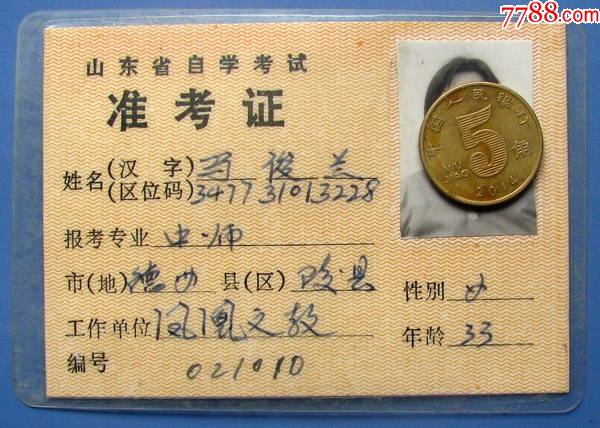 7788.com
中国收藏热线
山东省自学考试
准考证
姓名(汉字)马俊兰
(区位码)3477 3101 3228
报考专业 中师
市(地)德州 县(区)陵县
工作单位 凤凰文教
编号 021010
性别 女
年龄 33
中国人民银行
5角
WU JIAO
2014